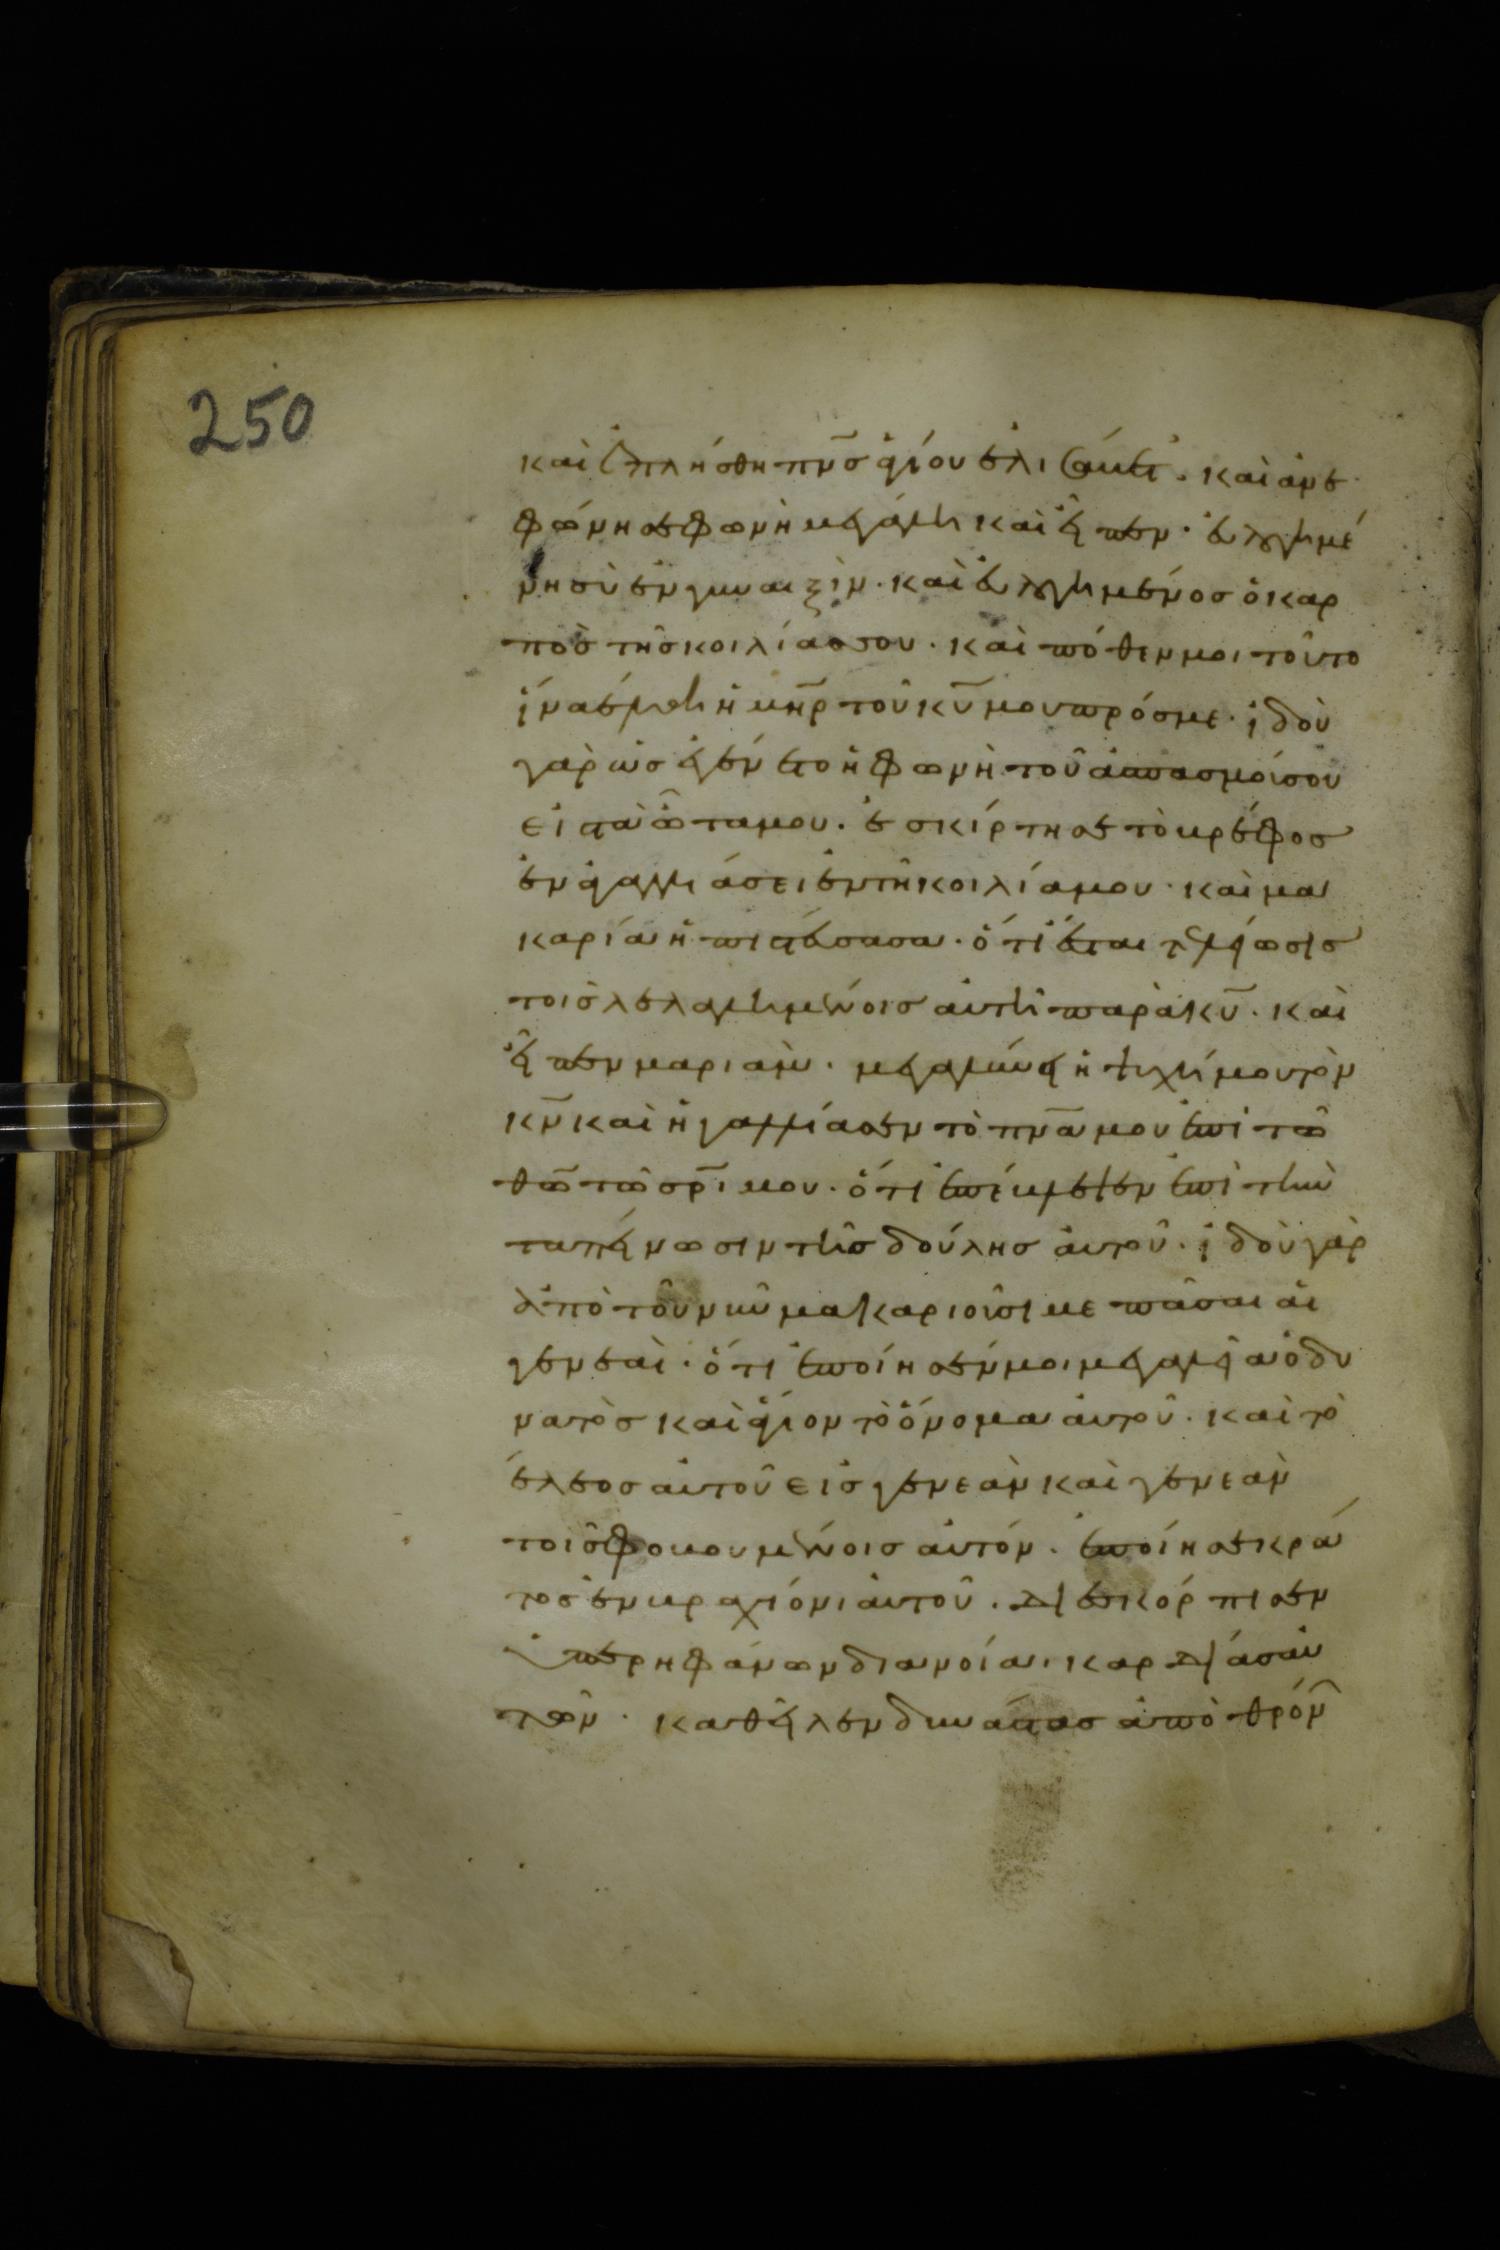 250
καὶ ἐπλήσθη πν̅σ ἁγίου ἐλισάβετ. καὶ ἀνε
φώνησε φωνῆ μεγάλη καὶ εἶπεν· εὐλογημέ
νη σὺ ἐν γυναιξὶν· καὶ εὐλογημένοσ ὁ καρ
πὸσ τῆσ κοιλίασ σου· καὶ πόθεν μοι τοῦτο
ἵνα ἔλθη ἡ μη̅ρ τοῦ κυ̅ μου πρόσ με· ἰδοὺ
γὰρ ὡσ ἐγένετο ἡ φωνὴ τοῦ ἀσπασμοῦ σου
εἰσ τὰ ὦτα μου· ἐσκίρτησε τὸ βρέφοσ
ἐν ἀγαλλιάσει ἐν τῆ κοιλία μου· καὶ μα
καρία ἡ πιστεύσασα· ὅτι ἔσται τελείωσισ
τοῖσ λελαλημένοισ αὐτῆ παρὰ κυ̅· καὶ
εἶπεν μαριὰμ· μεγαλύνει ἡ ψυχή μου τὸν
κν̅ καὶ ἠγαλλίασεν τὸ πνα̅ μου ἐπὶ τῶ
θω̅ τῶ σρ̅ι μου· ὅτι ἐπέβλεψεν ἐπὶ τὴν
ταπείνωσιν τῆσ δούλησ αὐτοῦ· ἰδοὺ γὰρ
ἀπὸ τοῦ νῦν μακαριοῦσι με πᾶσαι αἱ
γενεαὶ· ὅτι ἐποίησέν μοι μεγαλεῖα ὁ δυ
νατὸσ καὶ ἅγιον τὸ ὄνομα αὐτοῦ· καὶ τὸ
ἔλεοσ αὐτοῦ εἰσ γενεὰν καὶ γενεὰν
τοῖσ φοβουμένοισ αὐτόν· ἐποίησε κρά
τοσ ἐν βραχίονι αὐτοῦ· διεσκόρπισεν
ὑπερηφάνων διανοία· καρδίασ αὐ
τῶν· καθεῖλεν δυνάστασ ἀπὸ θρόν